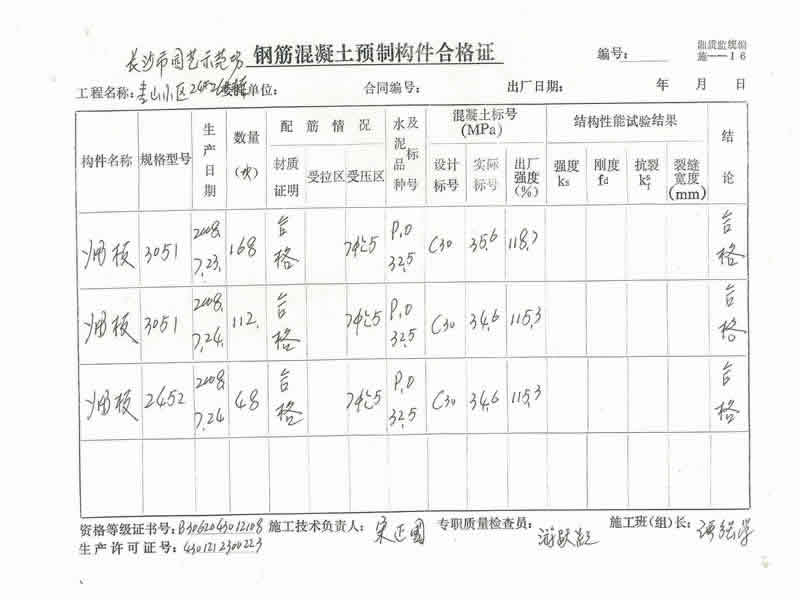 长沙市园艺示范场 钢筋混凝土预制构件合格证 编号: 施——16
工程名称: 青山小区 单位: 合同编号: 出厂日期: 年 月 日
构件名称 规格型号 生产日期 数量(块) 配筋情况 水泥品种及标号 混凝土标号(MPa) 结构性能试验结果 结论
材质证明 受拉区 受压区 设计标号 实际标号 出厂强度(%) 强度ks 刚度fd 抗裂 裂缝宽度(mm)
3051 2008.7.23. 168 合格 P.O 32.5 C30 35.6 118.7 合格
3051 2008.7.24. 112. 合格 P.O 32.5 C30 34.6 115.3 合格
2452 2008.7.24 48 合格 P.O 32.5 C30 34.6 115.3 合格
资格等级证书号: 施工技术负责人: 宋正国 专职质量检查员: 施工班(组)长:
生产许可证号: